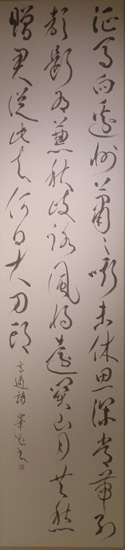 征馬向邊州蕭々嘶未休思深常帶別
聲斷為兼秋歧路風將遠關山月共愁
贈君從此去何日大刀頭
高適詩